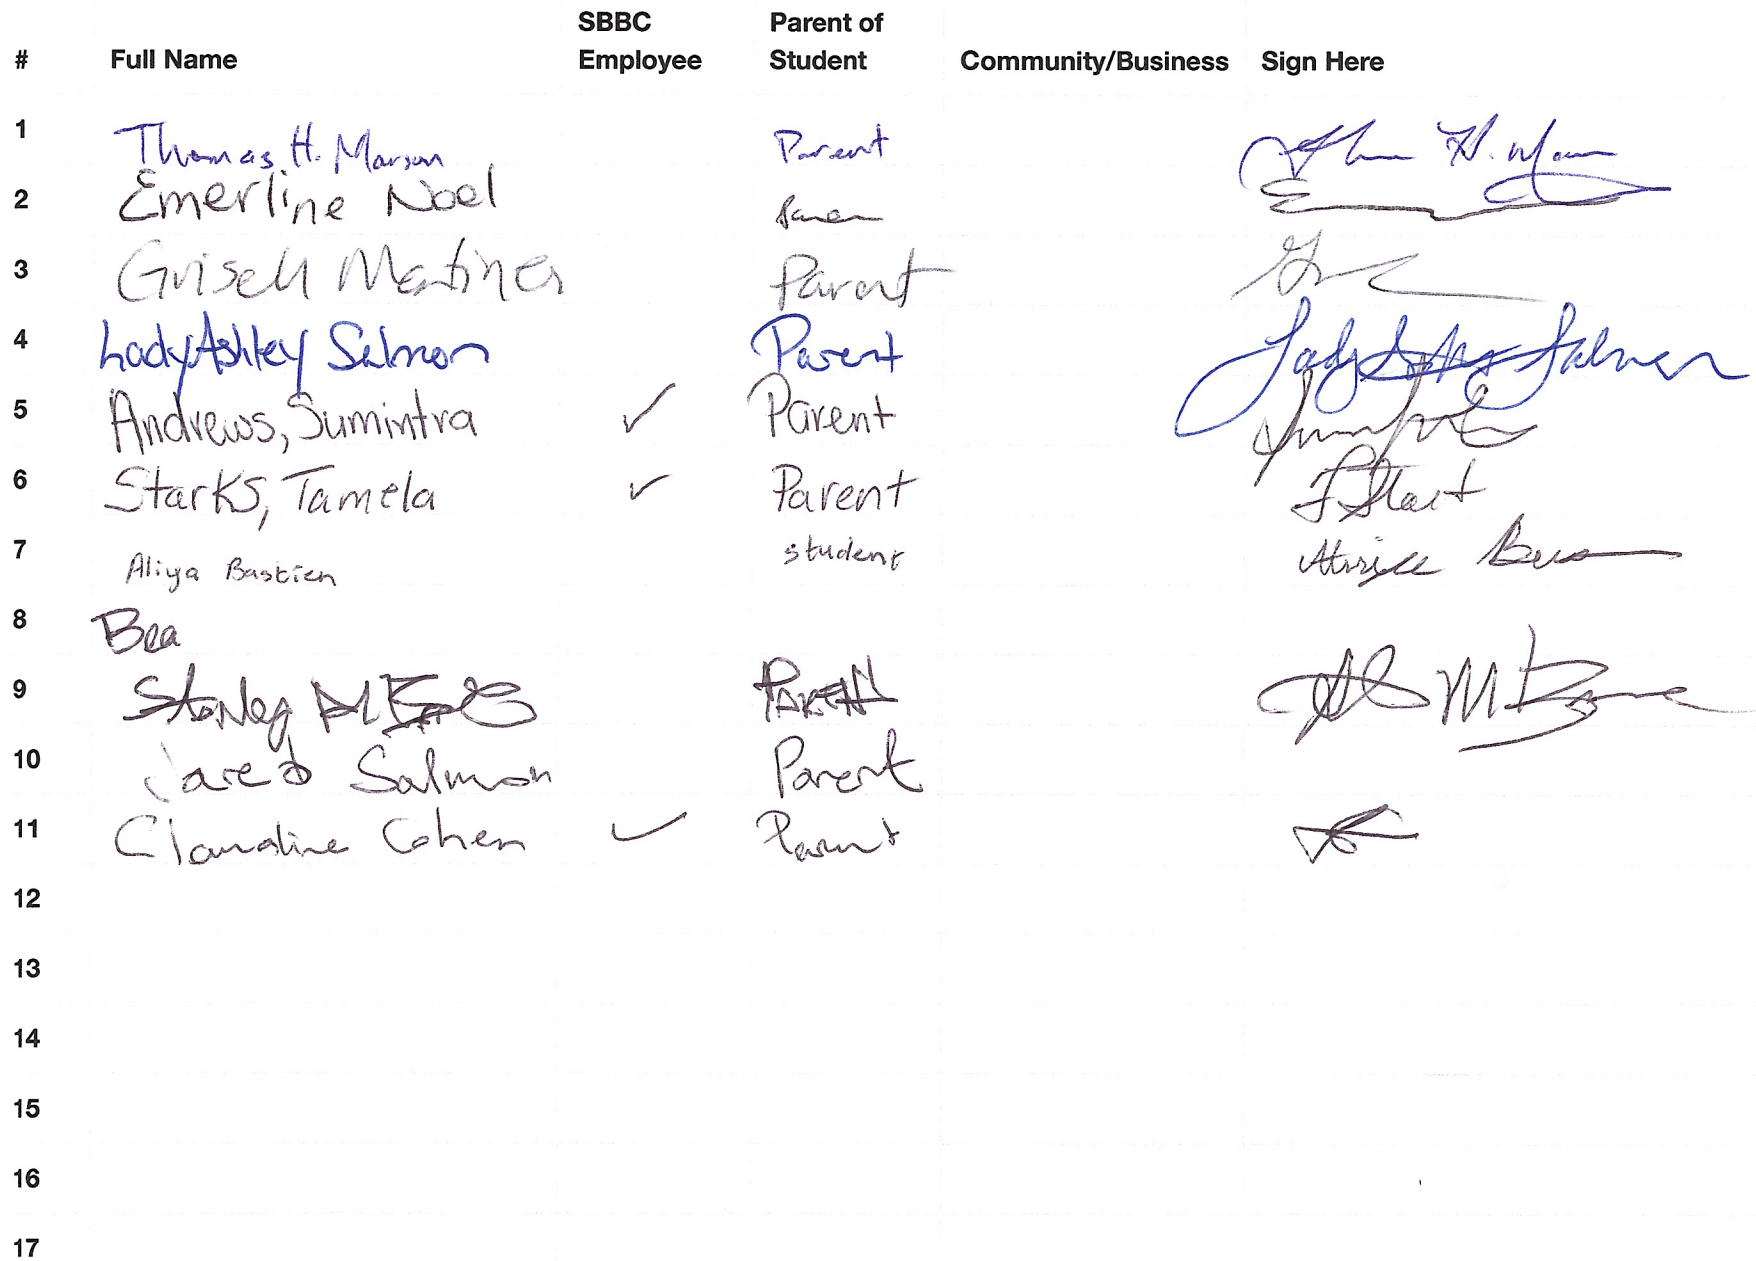 SBBC Parent of
# Full Name Employee Student Community/Business Sign Here
1 Thomas H. Marson Parent
2 Emerline Noel
3 Grisell Martinez Parent
4 LadyAshley Salmon Parent Lady Ashley Salmon
5 Andrews, Sumintra ✓ Parent
6 Starks, Tamela ✓ Parent
7 Aliya Bastien student
8 Bea
9 Stanley Parent
10 Jared Salmon Parent
11 Claudine Cohen ✓ Parent
12
13
14
15
16
17